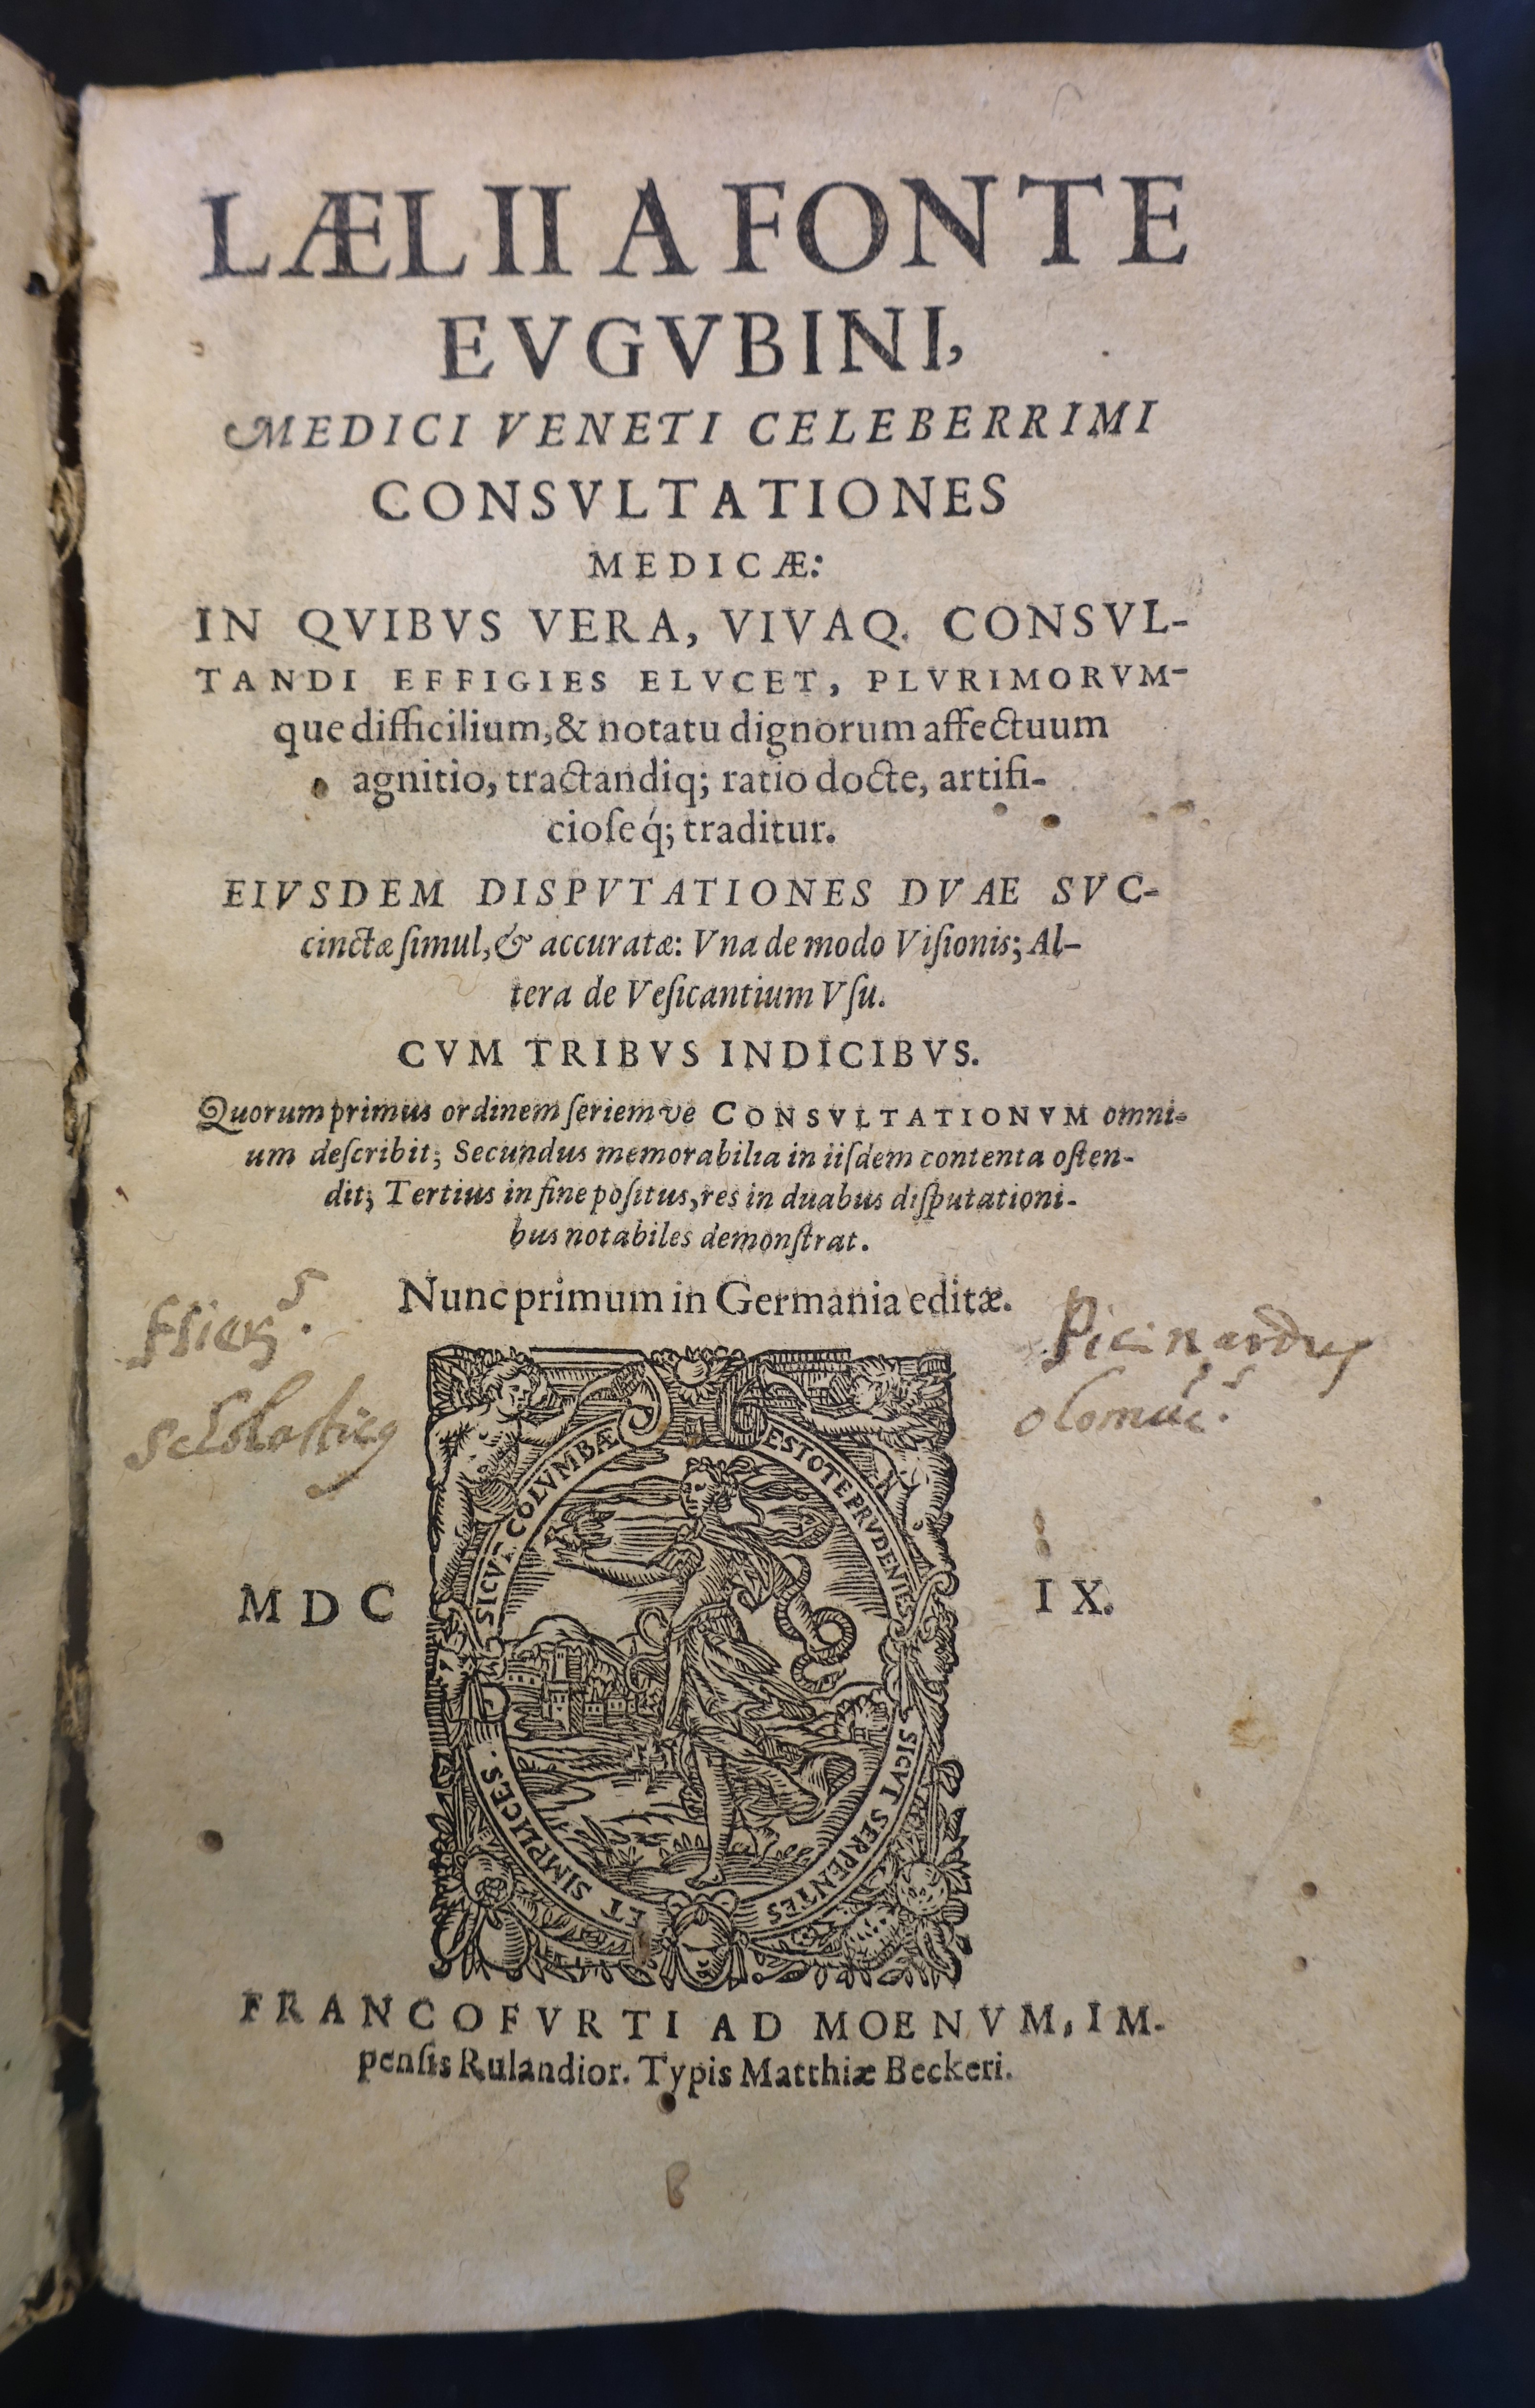 LÆLII A FONTE
EVGVBINI,
MEDICI VENETI CELEBERRIMI
CONSVLTATIONES
MEDICÆ:
IN QVIBVS VERA, VIVAQ. CONSVL-
TANDI EFFIGIES ELVCET, PLVRIMORVM-
que difficilium, & notatu dignorum affectuum
agnitio, tractandiq; ratio docte, artifi-
cioſeq́; traditur.
EIVSDEM DISPVTATIONES DVAE SVC-
cinctæ ſimul, & accuratæ: Vna de modo Viſionis; Al-
tera de Veſicantium Vſu.
CVM TRIBVS INDICIBVS.
Quorum primus ordinem ſeriemve CONSVLTATIONVM omni-
um deſcribit; Secundus memorabilia in iiſdem contenta oſten-
dit; Tertius in fine poſitus, res in duabus diſputationi-
bus notabiles demonſtrat.
Nunc primum in Germania editæ.
ESTOTE PRVDENTES SICVT SERPENTES
ET SIMPLICES. SICVT COLVMBÆ
MDC IX.
FRANCOFVRTI AD MOENVM, IM-
penſis Rulandior. Typis Matthiæ Beckeri.